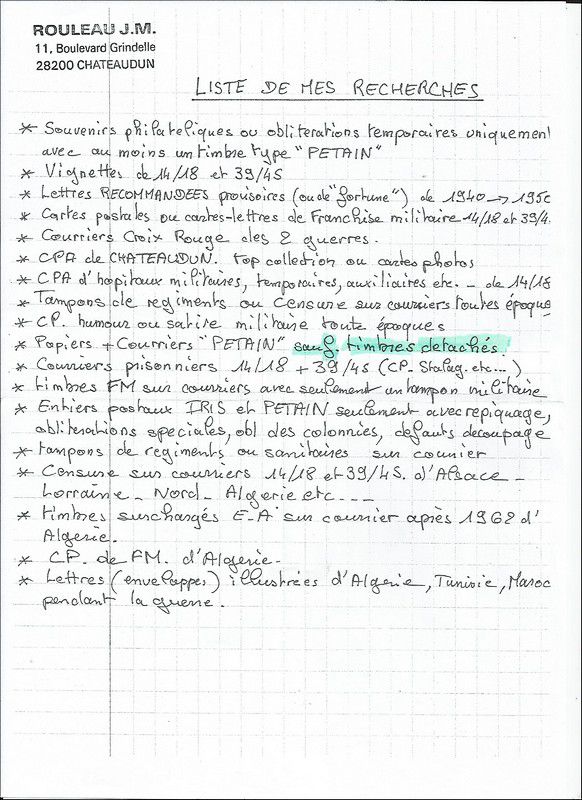 ROULEAU J.M.
11, Boulevard Grindelle
28200 CHATEAUDUN
LISTE DE MES RECHERCHES
* Souvenirs philateliques ou obliterations temporaires uniquement
avec au moins un timbre type "PETAIN"
* Vignettes de 14/18 et 39/45
* Lettres RECOMMANDEES provisoires (ou de "fortune") de 1940 → 1950
* Cartes postales ou cartes-lettres de Franchise militaire 14/18 et 39/4
* Courriers Croix Rouge des 2 guerres.
* CPA de CHATEAUDUN. top collection ou cartes photos
* CPA d'hopitaux militaires, temporaires, auxiliaires etc. - de 14/18
* Tampons de regiments ou Censure sur courriers toutes époques
* CP. humour ou satire militaire toute époques
* Papiers + Courriers "PETAIN" sauf. timbres detachés.
* Courriers prisonniers 14/18 + 39/45 (CP. Stalag. etc...)
* timbres FM sur courriers avec seulement un tampon militaire
* Entiers postaux IRIS et PETAIN seulement avec repiquage,
obliterations speciales, obl des colonnies, défauts decoupage
* tampons de regiments ou sanitaires sur courier
* Censure sur courriers 14/18 et 39/45. d'Alsace -
Lorraine - Nord - Algerie etc ---
* timbres surchargés E-A sur courrier après 1962 d'
Algerie.
* CP. de FM. d'Algerie-
* Lettres (enveloppes) illustrées d'Algerie, Tunisie, Maroc
pendant la guerre.